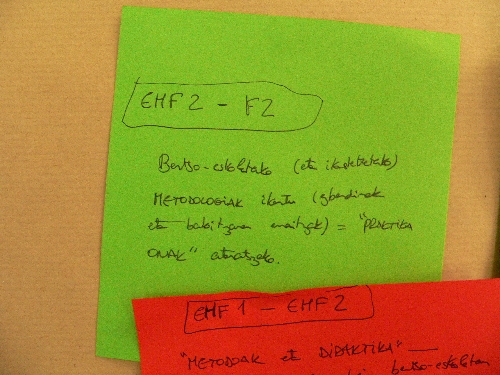 EMF 2 - F2
Bertso-eskoletako (eta ikastetxetako)
METODOLOGIAK ikertu (ezberdinak
eta bakoitzaren emaitzak) = "PRAKTIKA
ONAK" ateratzeko.
EMF 1 - EMF 2
"METODOAK eta DIDAKTIKA"
bertso-eskoletan